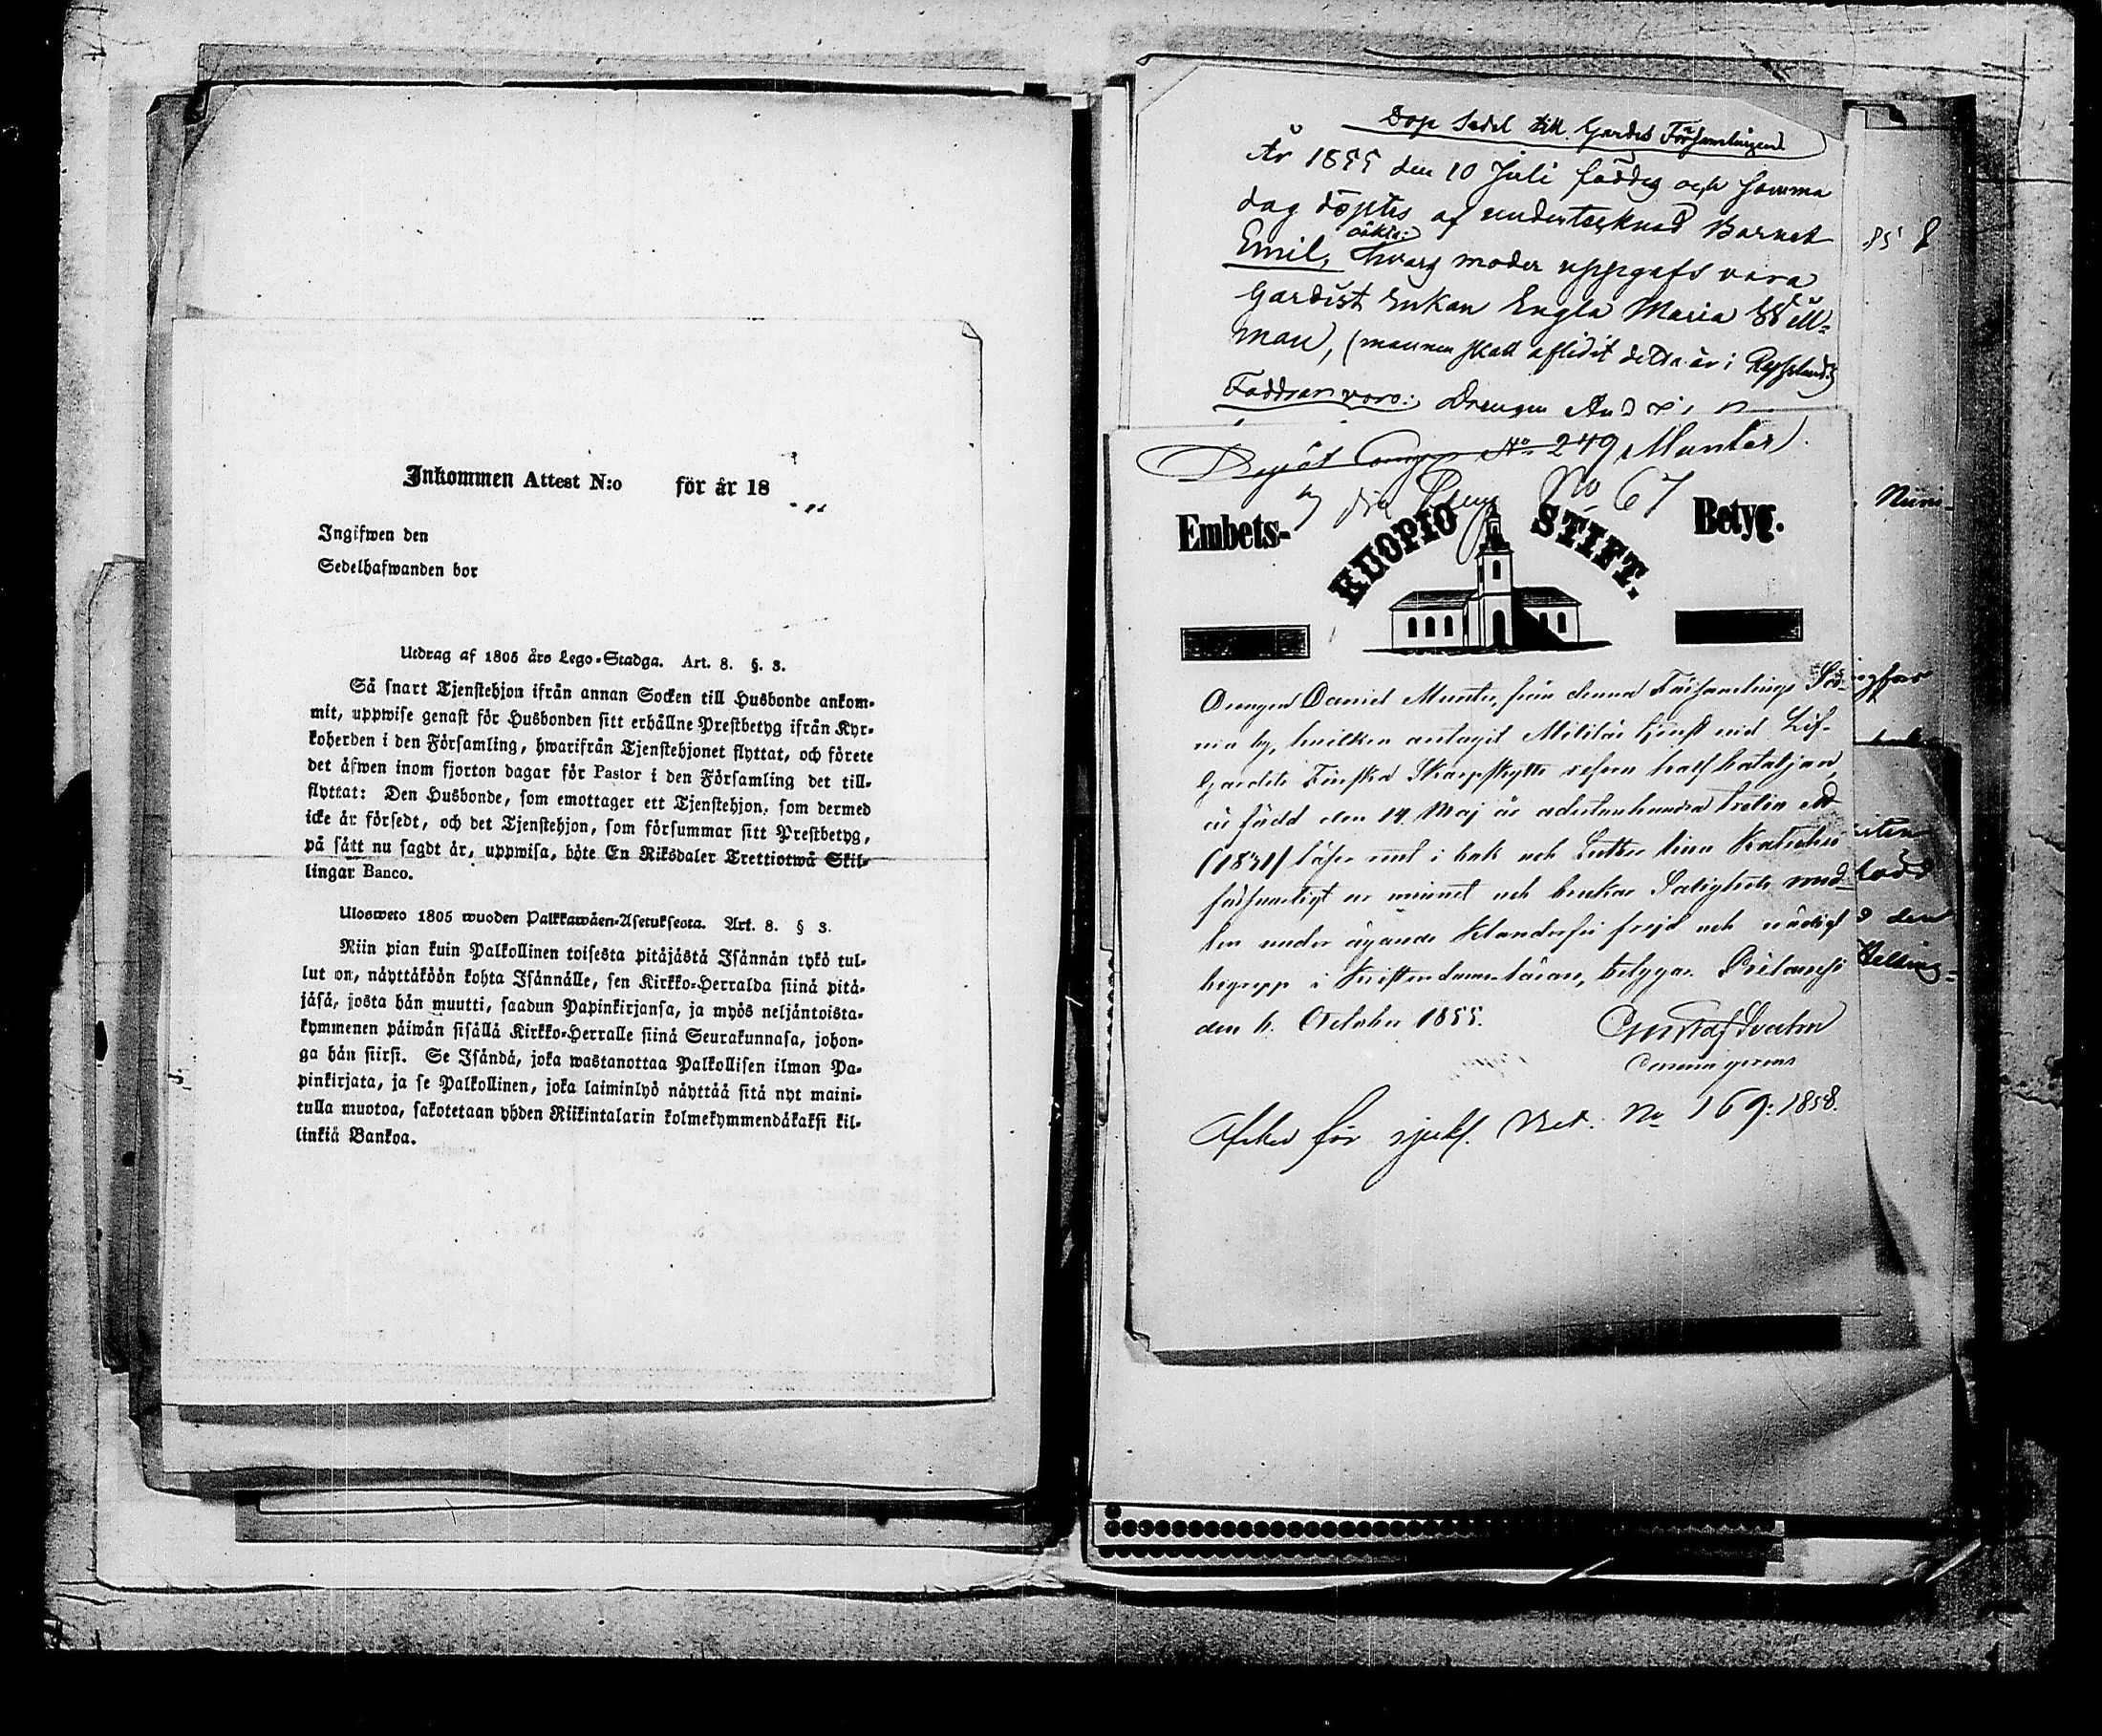 Inkommen Attest N:o för år 18
Ingifwen den
Sedelhafwanden bor
Utdrag af 1805 års Lego-Stadga. Art. 8. §. 3.
Så snart Tjenstehjon ifrån annan Socken till Husbonde ankom-
mit, uppwise genast för Husbonden sitt erhållne Prestbetyg ifrån Kyr-
koherden i den Församling, hwarifrån Tjenstehjonet flyttat, och förete
det åfwen inom fjorton dagar för Pastor i den Församling det till-
flyttat: Den Husbonde, som emottager ett Tjenstehjon, som dermed
icke är försedt, och det Tjenstehjon, som försummar sitt Prestbetyg,
på sätt nu sagdt är, uppwisa, böte En Riksdaler Trettiotwå Skil-
lingar Banco.
Ulosweto 1805 wuoden Palkkawäen-Asetuksesta. Art. 8. § 3.
Niin pian kuin Palkollinen toisesta pitäjästä Isännän tykö tul-
lut on, näyttäköön kohta Isännälle, sen Kirkko-Herralda siinä pitä-
jäsä, josta hän muutti, saadun Papinkirjansa, ja myös neljäntoista-
kymmenen päiwän sisällä Kirkko-Herralle siinä Seurakunnasa, johon-
ga hän siirsi. Se Isändä, joka wastanottaa Palkollisen ilman Pa-
pinkirjata, ja se Palkollinen, joka laiminlyö näyttää sitä nyt maini-
tulla muotoa, sakotetaan yhden Riikintalarin kolmekymmendäkaksi kil-
linkiä Bankoa.
Dop Sedel till Gardes Församlingen
År 1855 den 10 Juli föddes och samma
dag döptes af undertecknad Barnet
Emil, hvars moder uppgafs vara
Gardist Enkan Engla Maria Will-
man, (mannen skall aflidit detta år i Ryssland)
Faddrar voro: Drengen
Depôt No 249 Munter.
No 67
Embets- KUOPIO STIFT. Betyg.
Drengen Daniel Munter, från denna Församlings
by, hvilken antagit Militär tjenst vid Lif-
Gardets Finska Skarpskytte reserv half bataljon,
är född den 14 Maj år adertonhundra tretio ett
(1831) läser rent i bok och Luther
försvarligt ur minnet och brukar Salighets med-
len under ägande klanderfri frejd och nödigt
begrepp i Kristendomsläran, betygar. Pielavesi
den 6. October 1855. Gustaf
No 169: 1858.